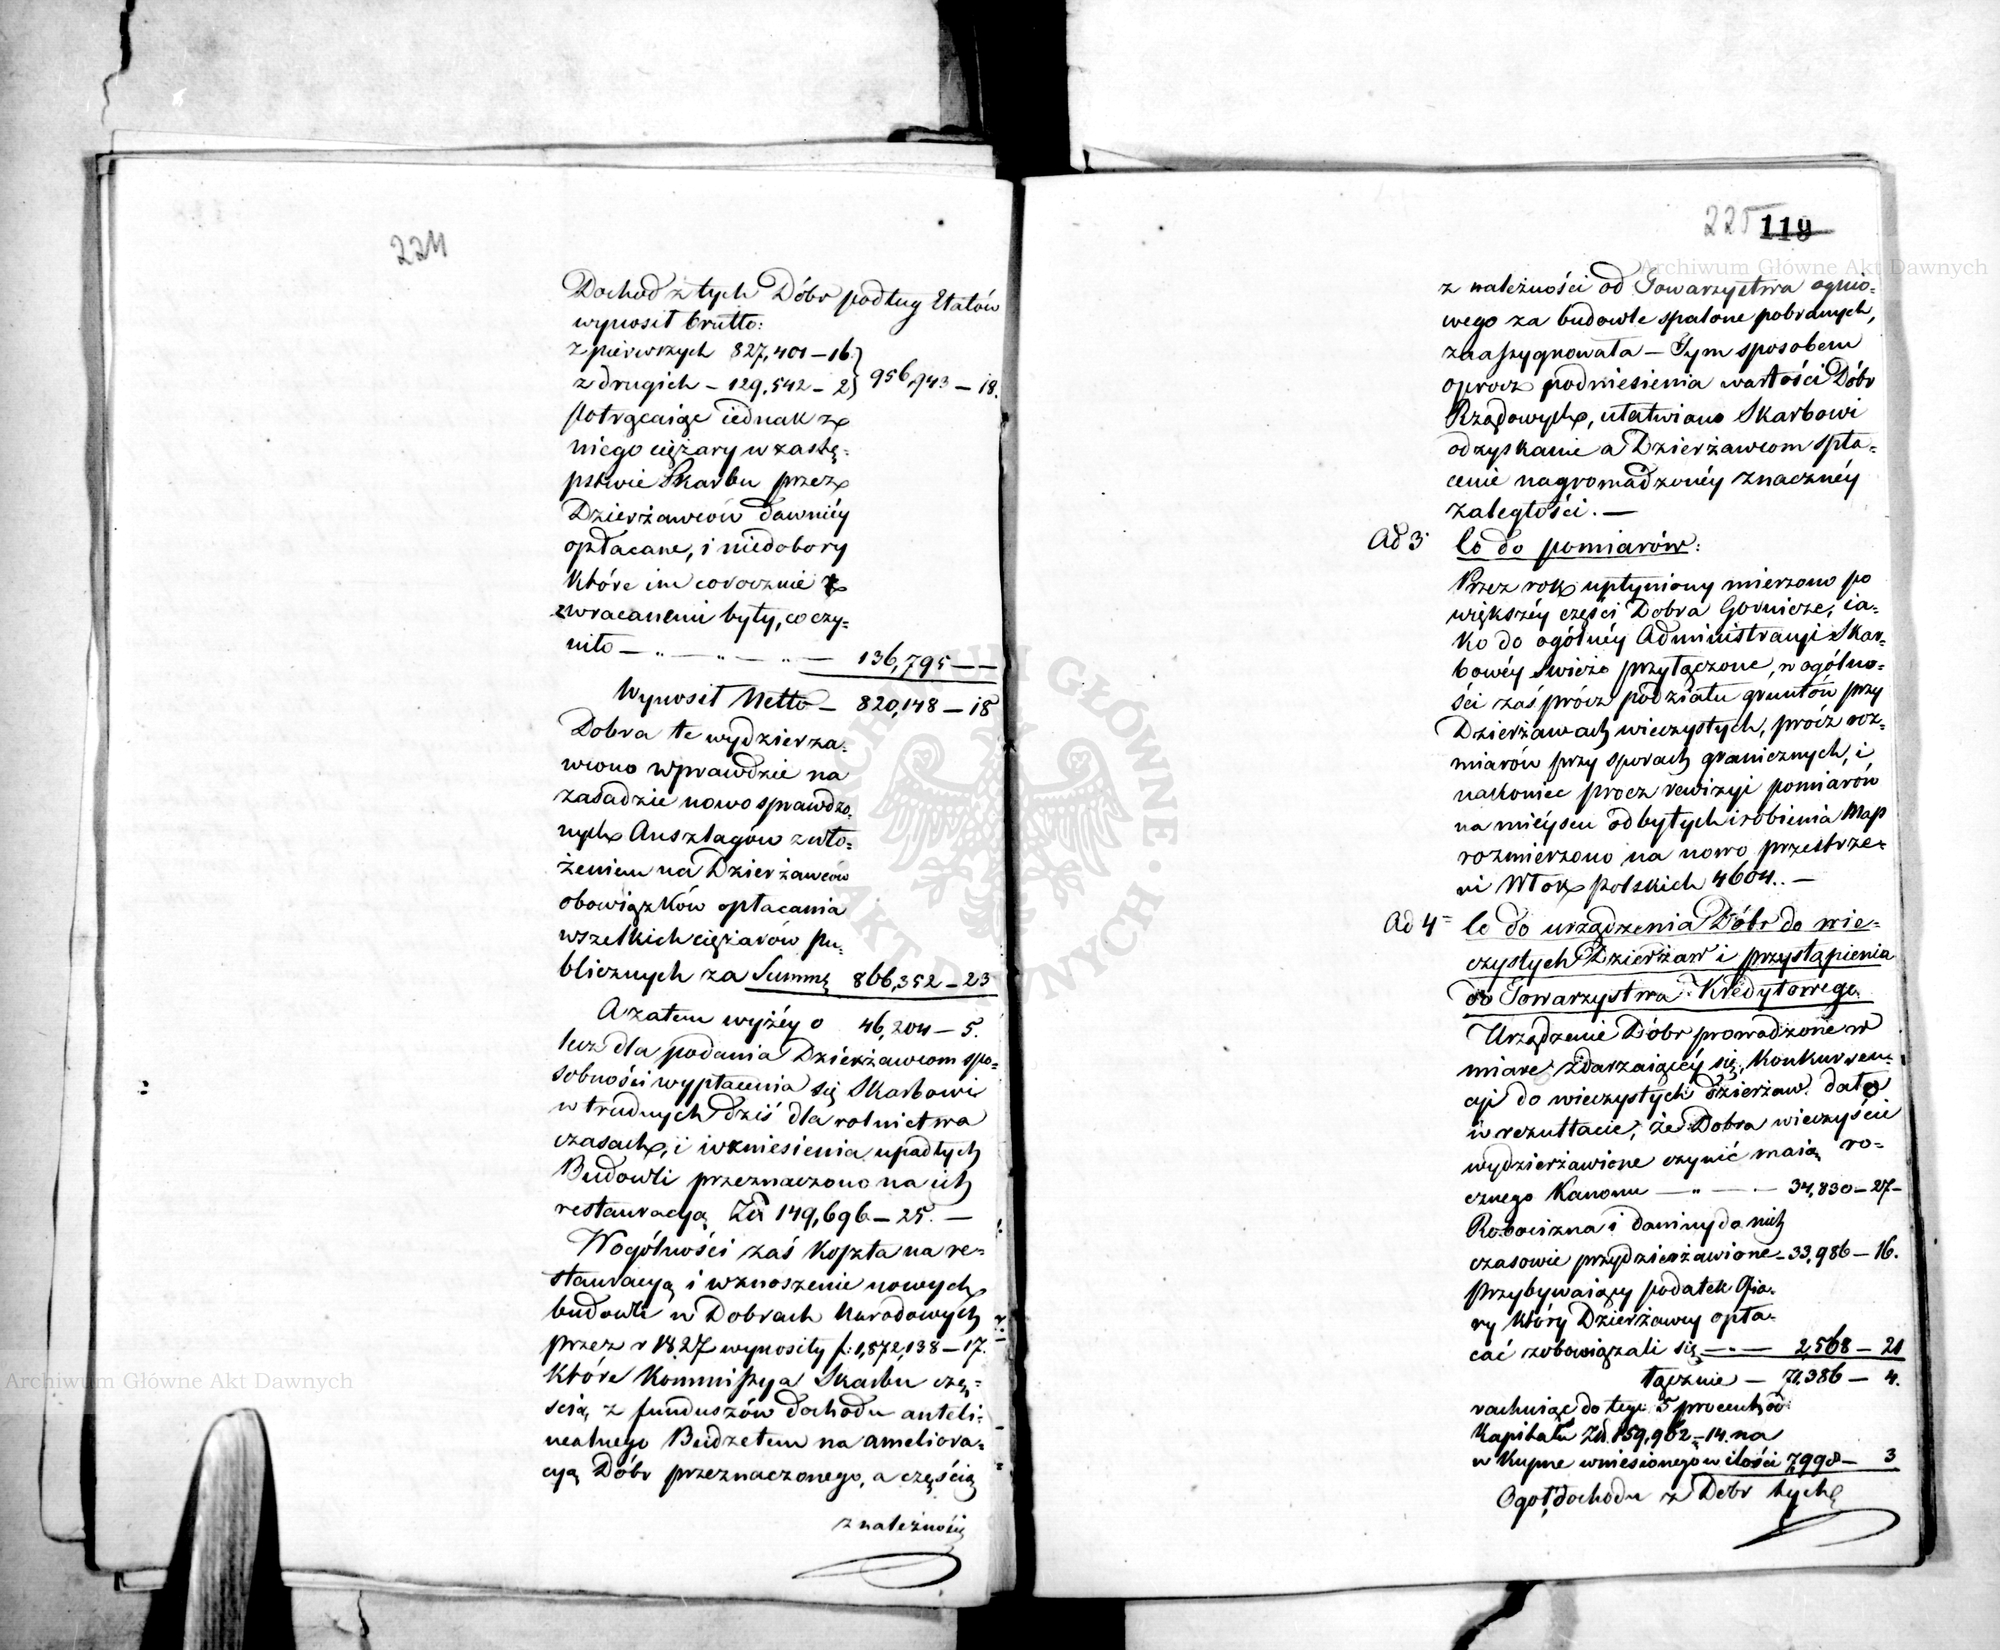 224
Dochod z tych Dóbr podług Etatów
wynosił brutto:
z pierwszych 827,401 – 16.
z drugich – 129,542 – 2 } 956,943 – 18.
potrącaiąc iednak z
niego ciężary w zastę-
pstwie Skarbu przez
Dzierżawców dawniéy
opłacane, i niedobory
które im corocznie
zwracanemi były, co czy-
niło — „ — „ — „ — 136,795 — —
Wynosił Netto – 820,148 – 18
Dobra te wydzierza-
wiono wprawdzie na
zasadzie nowo sprawdzo-
nych Anszlagów z wło-
żeniem na Dzierżawców
obowiązków opłacania
wszelkich ciężarów pu-
blicznych za Summę 866,352 – 23
A zatem wyżéy o 46,204 – 5.
lecz dla podania Dzierżawcom spo-
sobności wypłacenia się Skarbowi
w trudnych dziś dla rolnictwa
czasach, i wzniesienia upadłych
Budowli przeznaczono na ich
restauracyą Zł 149,696 – 25. —
W ogólności zaś koszta na re-
stauracyą i wznoszenie nowych
budowli w Dobrach Narodowych
przez r 1827 wynosiły f: 1,872,138 – 17.
które Kommissya Skarbu czę-
ścią z funduszów dochodu anteli-
nealnego Budżetem na ameliora-
cyą Dóbr przeznaczonego, a częścią
z należności
225 119
z należności od Towarzystwa ognio-
wego za budowle spalone pobranych,
zaassygnowała – Tym sposobem
oprocz podniesienia wartości Dóbr
Rządowych, ułatwiono Skarbowi
odzyskanie a Dzierżawcom spła-
cenie nagromadzonéy znacznéy
zaległości. —
Ad 3 Co do pomiarów:
Przez rok upłyniony mierzono po
większéy części Dobra Gornicze, ia-
ko do ogólnéy Administracyi Skar-
bowéy świeżo przyłączone, w ogólno-
ści zaś prócz podziału gruntów przy
Dzierżawach wieczystych, prócz roz-
miarów przy sporach granicznych, i
nakoniec procz rewizyi pomiarów
na mieyscu odbytych i robienia Map
rozmierzono na nowo przestrze-
ni Włok polskich 4604. —
Ad 4 Co do urządzenia Dóbr do wie-
czystych Dzierżaw i przystąpienia
do Towarzystwa Kredytowego.
Urządzenie Dóbr prowadzone w
miarę zdarzaiącéy się konkurren-
cyi do wieczystych dzierżaw. dało
w rezultacie, że Dobra wieczyście
wydzierżawione czynić maią ro-
cznego Kanonu — „ — — 34,830 – 27 –
Robocizna i daniny do nich
czasowie przydzierżawione – 33,986 – 16.
Przybywaiący podatek Ofia-
ry który Dzierżawcy opła-
cać zobowiązali się — „ — 2,568 – 21
łącznie — 71,386 – 4.
rachuiąc do tego 5 procent od
Kapitału Zł. 159,962 – 14. na
w Kupne wniesionego w ilości 7,998 – 3
Ogoł dochodu z Dóbr tych
Archiwum Główne Akt Dawnych
Archiwum Główne Akt Dawnych
ARCHIWUM GŁÓWNE AKT DAWNYCH